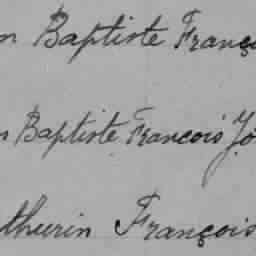 n Baptiste Franço
n Baptiste Francois Jo
thurin François